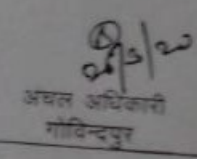 अचल अधिकारी
गोविन्दपुर